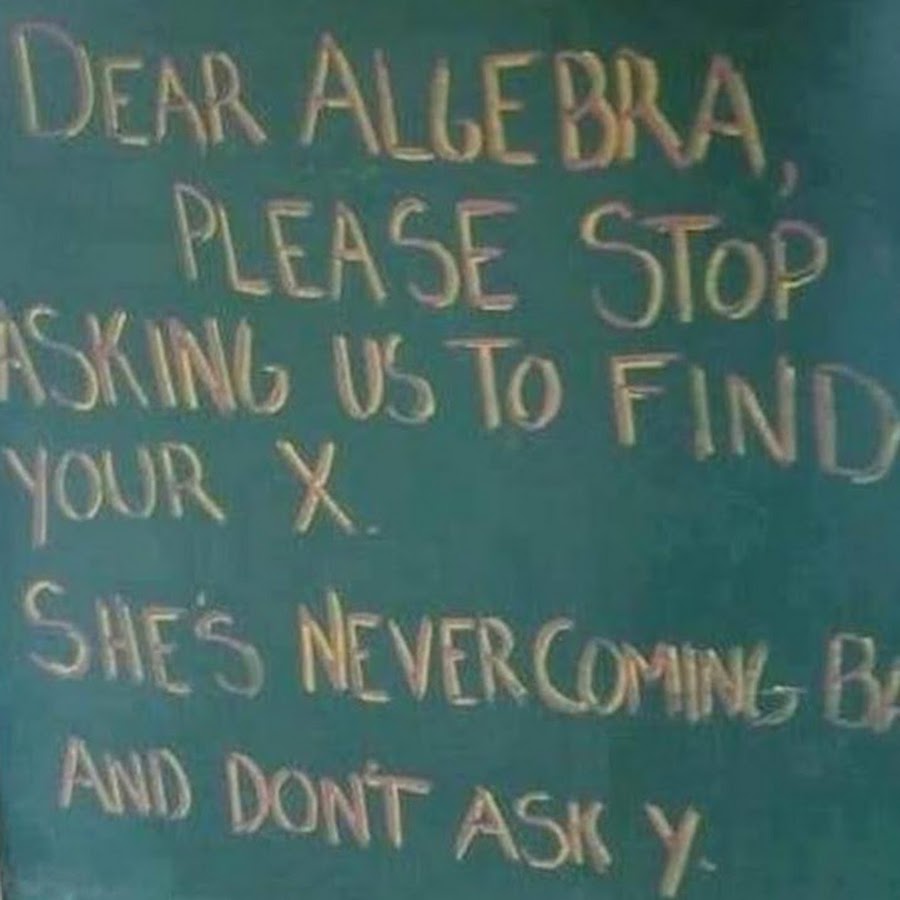 DEAR ALGEBRA,
PLEASE STOP
ASKING US TO FIND
YOUR X.
SHE'S NEVER COMING BA
AND DON'T ASK Y.